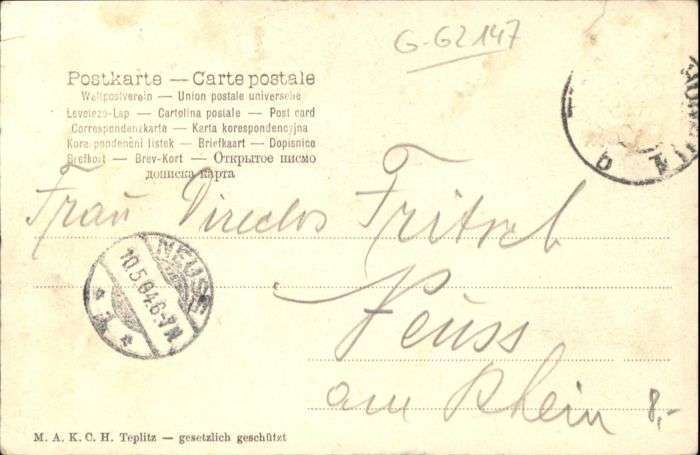 G-G2147
Postkarte — Carte postale
Weltpostverein — Union postale universelle
Levelezo-Lap — Cartolina postale — Post card
Correspondenzkarte — Karta korespondencyjna
Korespondenční listek — Briefkaart — Dopisnice
Brefkort — Brev-Kort — Открытое писмо
дописка карта
Frau Director Fritsch
NEUSS
10.5.04.6-7N.
Neuss
am Rhein
8,-
M. A. K. C. H. Teplitz — gesetzlich geschützt